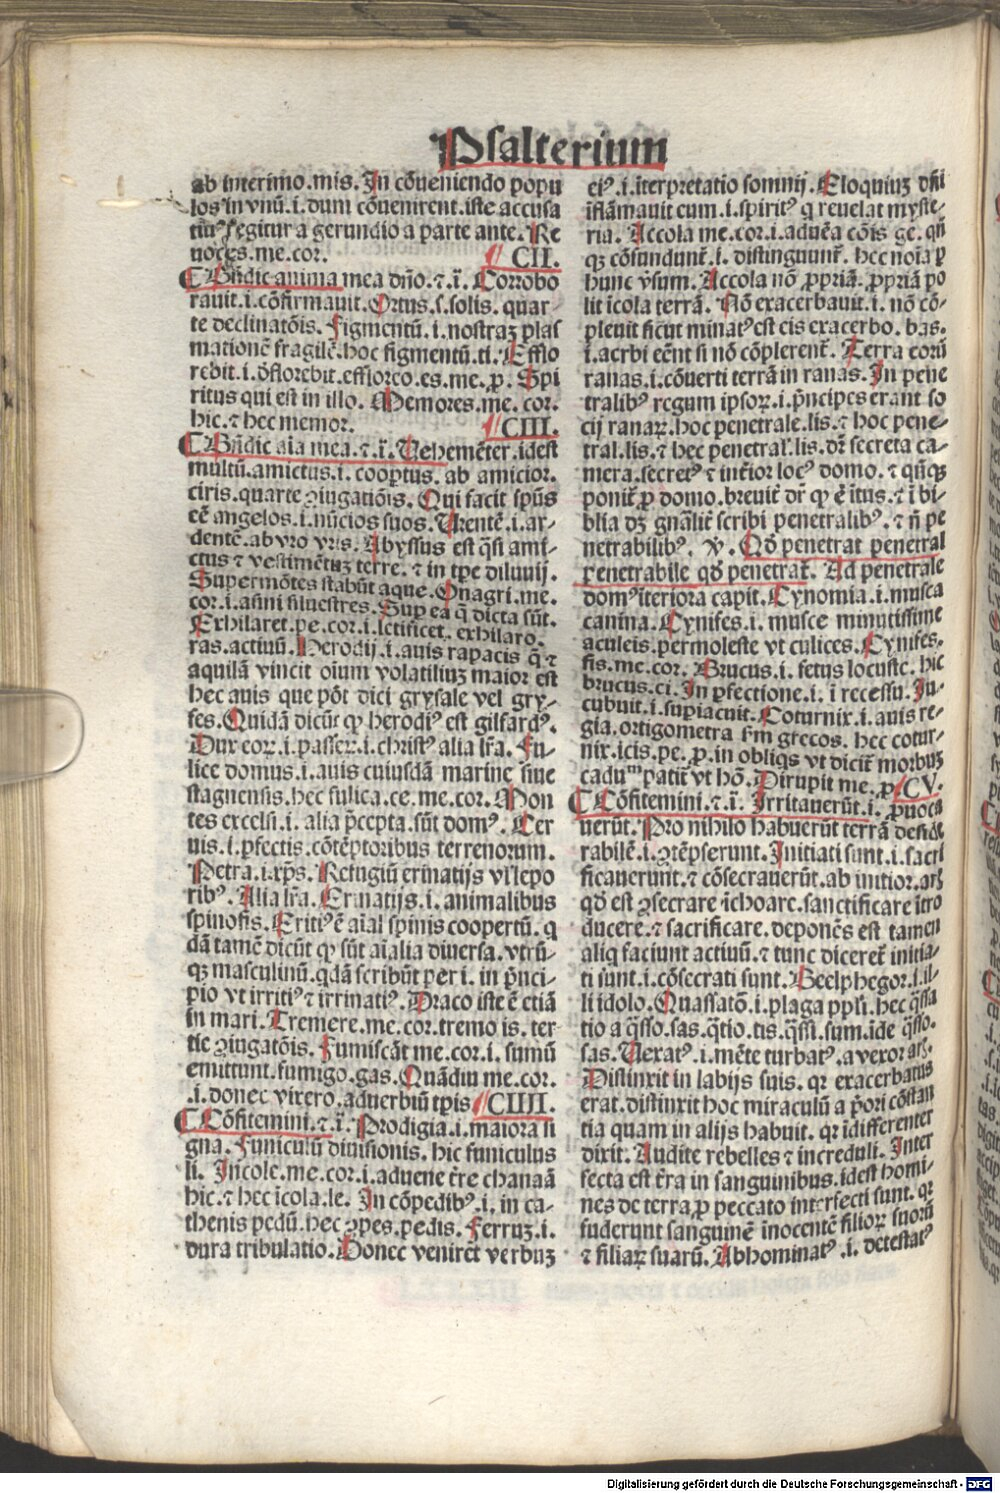 Psalterium
ab interimo.mis. In cōueniendo popu
los in vnū.i.dum cōuenirent.iste accusa
tiuꝰ regitur a gerundio a parte ante. Re
uoces.me.cor.
CII.
Bn̄dic anima mea dn̄o.⁊.ī. Corrobo
rauit.i.cōfirmauit. Ortus.s.solis. quar-
te declinatōis. Figmentū.i.nostraꝫ plas
mationē fragilē.hoc figmentū.ti. Efflo
rebit.i.deflorebit.effloreo.es.me.ꝓ. Spi
ritus qui est in illo. Memores.me. cor.
hic.⁊ hec memor.
CIII.
Bn̄dic aīa mea.⁊.ī. Uehemēter.idest
multū.amictus.i.coopertus. ab amicior.
ciris.quarte ꝯiugatiōis. Qui facit spūs
eē angelos.i.nūcios suos. Urentē.i.ar-
dentē.ab vro vris. Abyssus est q̄si ami-
ctus ⁊ vestimētuꝫ terre.⁊ in tp̄e diluuij.
Super mōtes stabūt aque. Onagri.me.
cor.i.asini siluestres. Sup ea q̄ dicta sūt.
Exhilaret.pe.cor.i.letificet. exhilaro.
ras.actiuū. Herodij.i.auis rapacis q̄ ⁊
aquilā vincit oīum volatiliuꝫ maior est
hec auis que pōt dici grysale vel gry-
fes. Quidā dicūt ꝙ herodiꝰ est gilfardꝰ.
Dux eoꝝ.i.passeꝝ.i.christꝰ alia lr̄a. Fu-
lice domus.i.auis cuiusdā marine siue
stagnensis.hec fulica.ce.me.cor. Mon
tes excelsi.i. alia p̄cepta.sūt domꝰ. Cer
uis.i.ꝑfectis.cōtēptoribus terrenorum.
Petra.i.xp̄s. Refugiū erinatijs vl' lepo
ribꝰ. Alia lr̄a. Erinatijs.i. animalibus
spinosis. Eritiꝰ ē aīal spinis coopertū. q
dā tamē dicūt ꝙ sūt aīalia diuersa. vtrū-
qꝫ masculinū.qdā scribūt per i. in p̄nci-
pio vt irritiꝰ ⁊ irrinatiꝰ. Draco iste ē etiā
in mari. Tremere.me.cor.tremo is. ter-
tie ꝯiugatōis. Fumiscāt me.cor.i. fumū
emittunt.fumigo.gas. Quādiu me.cor.
.i.donec vixero.aduerbiū tp̄is
CIIII.
Cōfitemini.⁊.ī. Prodigia.i.maiora si
gna. Funiculū diuisionis. hic funiculus
li. Incole.me.cor.i.aduene tr̄e chanaā
hic.⁊ hec īcola.le. In cōpedibꝰ.i. in ca-
thenis pedū.hec ꝯpes.pedis. Ferruꝫ.i.
dura tribulatio. Donec veniret verbuꝫ
eiꝰ.i.īterpretatio somnij. Eloquiuꝫ dn̄i
īflāmauit eum.i.spiritꝰ q reuelat myste-
ria. Accola me.cor.i.aduēa cōis ge. qn̄
qꝫ cōfundunt̄.i. distinguunt̄. hec noīa ꝑ
hunc vsum. Accola nō ꝓpriā. ꝓpriā po
lit īcola terrā. Nō exacerbauit.i. nō cō-
pleuit sicut minatꝰ est eis exacerbo. bas.
i.acrbi eēnt si nō cōplerent̄. Terra eorū
ranas.i.cōuerti terrā in ranas. In pene
tralibꝰ regum ipsoꝝ.i.p̄ncipes erant so
cij ranaꝝ.hoc penetrale.lis.⁊ hoc pene-
tral.lis.⁊ hec penetral'.lis.dr̄ secreta ca-
mera.secretꝰ ⁊ inter̄ior locꝰ domo.⁊ qn̄qꝫ
ponit̄ ꝓ domo.breuit̄ dr̄ ꝙ ē ītus.⁊ ī bi-
blia dꝫ gn̄alit̄ scribi penetralibꝰ.⁊ n̄ pe
netrabilibꝰ. v̄. Qd̄ penetrat penetral
penetrabile qd̄ penetrat̄. Ad penetrale
domꝰ īteriora capit. Cynomia.i.musca
canina. Cynifes.i. musce minutissime
aculeis.permoleste vt culices. Cynifes.
fis.me.cor. Brucus.i. fetus locuste. hic
brucus.ci. In ꝑfectione.i. ī recessu. In-
cubuit.i.sup̄iacuit. Coturnix.i.auis re-
gia.ortigometra sm̄ grecos. hec cotur-
nix.icis.pe.ꝓ.in obliqs vt dicit̄ morbuꝫ
cadum patit̄ vt hō. Dirupit me.ꝓ.
CV.
Cōfitemini.⁊.ī. Irritauerūt.i.ꝓuoca
uerūt. Pro nihilo habuerūt terrā desid̄e
rabilē.i.ꝯtēpserunt. Initiati sunt.i.sacri
ficauerunt.⁊ cōsecrauerūt.ab initior.aris
qd̄ est ꝯsecrare īchoare.sanctificare ītro
ducere.⁊ sacrificare.deponēs est tamen
aliq faciunt actiuū.⁊ tunc diceret̄ initia-
ti sunt.i.cōsecrati sunt. Beelphegor.i.il-
li idolo. Quassatō.i.plaga pp̄li. hec q̄ssa
tio a q̄sso.sas.q̄tio.tis.q̄ssi.sum.īde q̄sso.
sas. Uexatꝰ.i.mēte turbatꝰ.a vexor aris.
Distinxit in labijs suis. qꝛ exacerbatus
erat.distinxit hoc miraculū a p̄ori cōstan
tia quam in alijs habuit. qꝛ īdifferenter
dixit. Audite rebelles ⁊ increduli. Inter
fecta est tr̄ra in sanguinibus.idest homi-
nes de terra.ꝓ peccato interfecti sunt. qꝛ
fuderunt sanguinē īnocentē filioꝝ suorū
⁊ filiaꝝ suarū. Abhominatꝰ.i. detestatꝰ
Digitalisierung gefördert durch die Deutsche Forschungsgemeinschaft - DFG